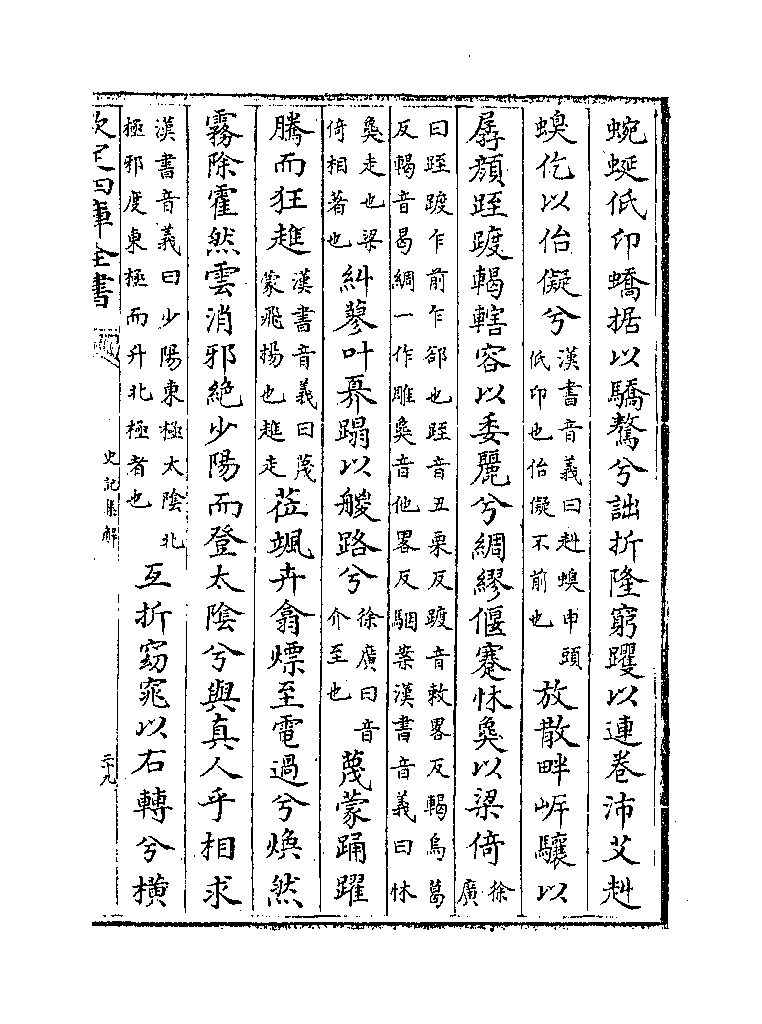 蜿蜒低卬蟜据以驕驁兮詘折隆窮躩以連卷沛艾赳
螑仡以佁儗兮漢書音義曰赳螑申頭低卬也佁儗不前也放散畔岸驤以
孱顏跮踱輵轄容以委麗兮綢繆偃蹇怵㚟以梁倚徐廣
曰跮踱乍前乍郤也跮音丑栗反踱音敕畧反輵烏葛
反輵音曷綢一作雕㚟音他畧反駰案漢書音義曰怵
㚟走也梁倚相著也糾蓼叶奡蹋以艐路兮徐廣曰音介至也蔑蒙踊躍
騰而狂趡漢書音義曰蔑蒙飛揚也趡走莅颯卉翕熛至電過兮煥然
霧除霍然雲消邪絶少陽而登太陰兮與真人乎相求
漢書音義曰少陽東極太陰北極邪度東極而升北極者也互折窈窕以右轉兮橫
欽定四庫全書
史記集解
三十九